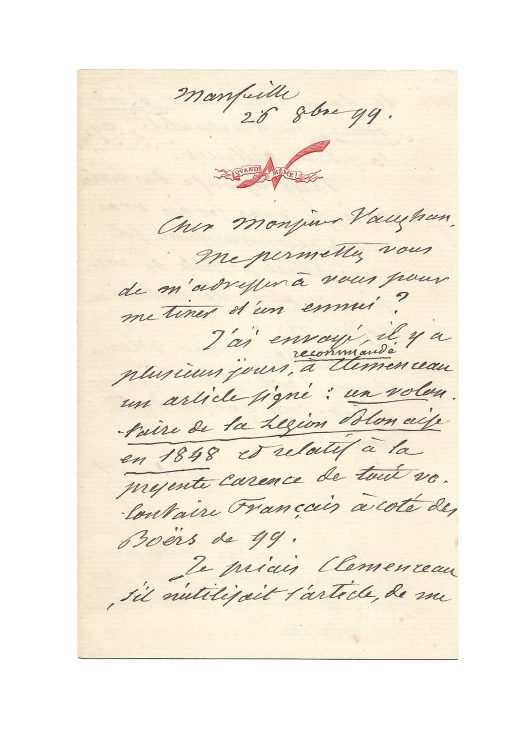 Marseille
26 8bre 99.
QUAND MÊME!
N
Cher Monsieur Vaughan,
Me permettez vous
de m'adresser à vous pour
me tirer d'un ennui ?
J'ai envoyé, il y a
recommandé
plusieurs jours, à Clemenceau
un article signé : un volon-
-taire de la Légion Polonaise
en 1848 et relatif à la
présente carence de tout vo-
-lontaire Français à côté des
Boërs de 99.
Je priais Clemenceau
, s'il n'utilisait l'article, de me